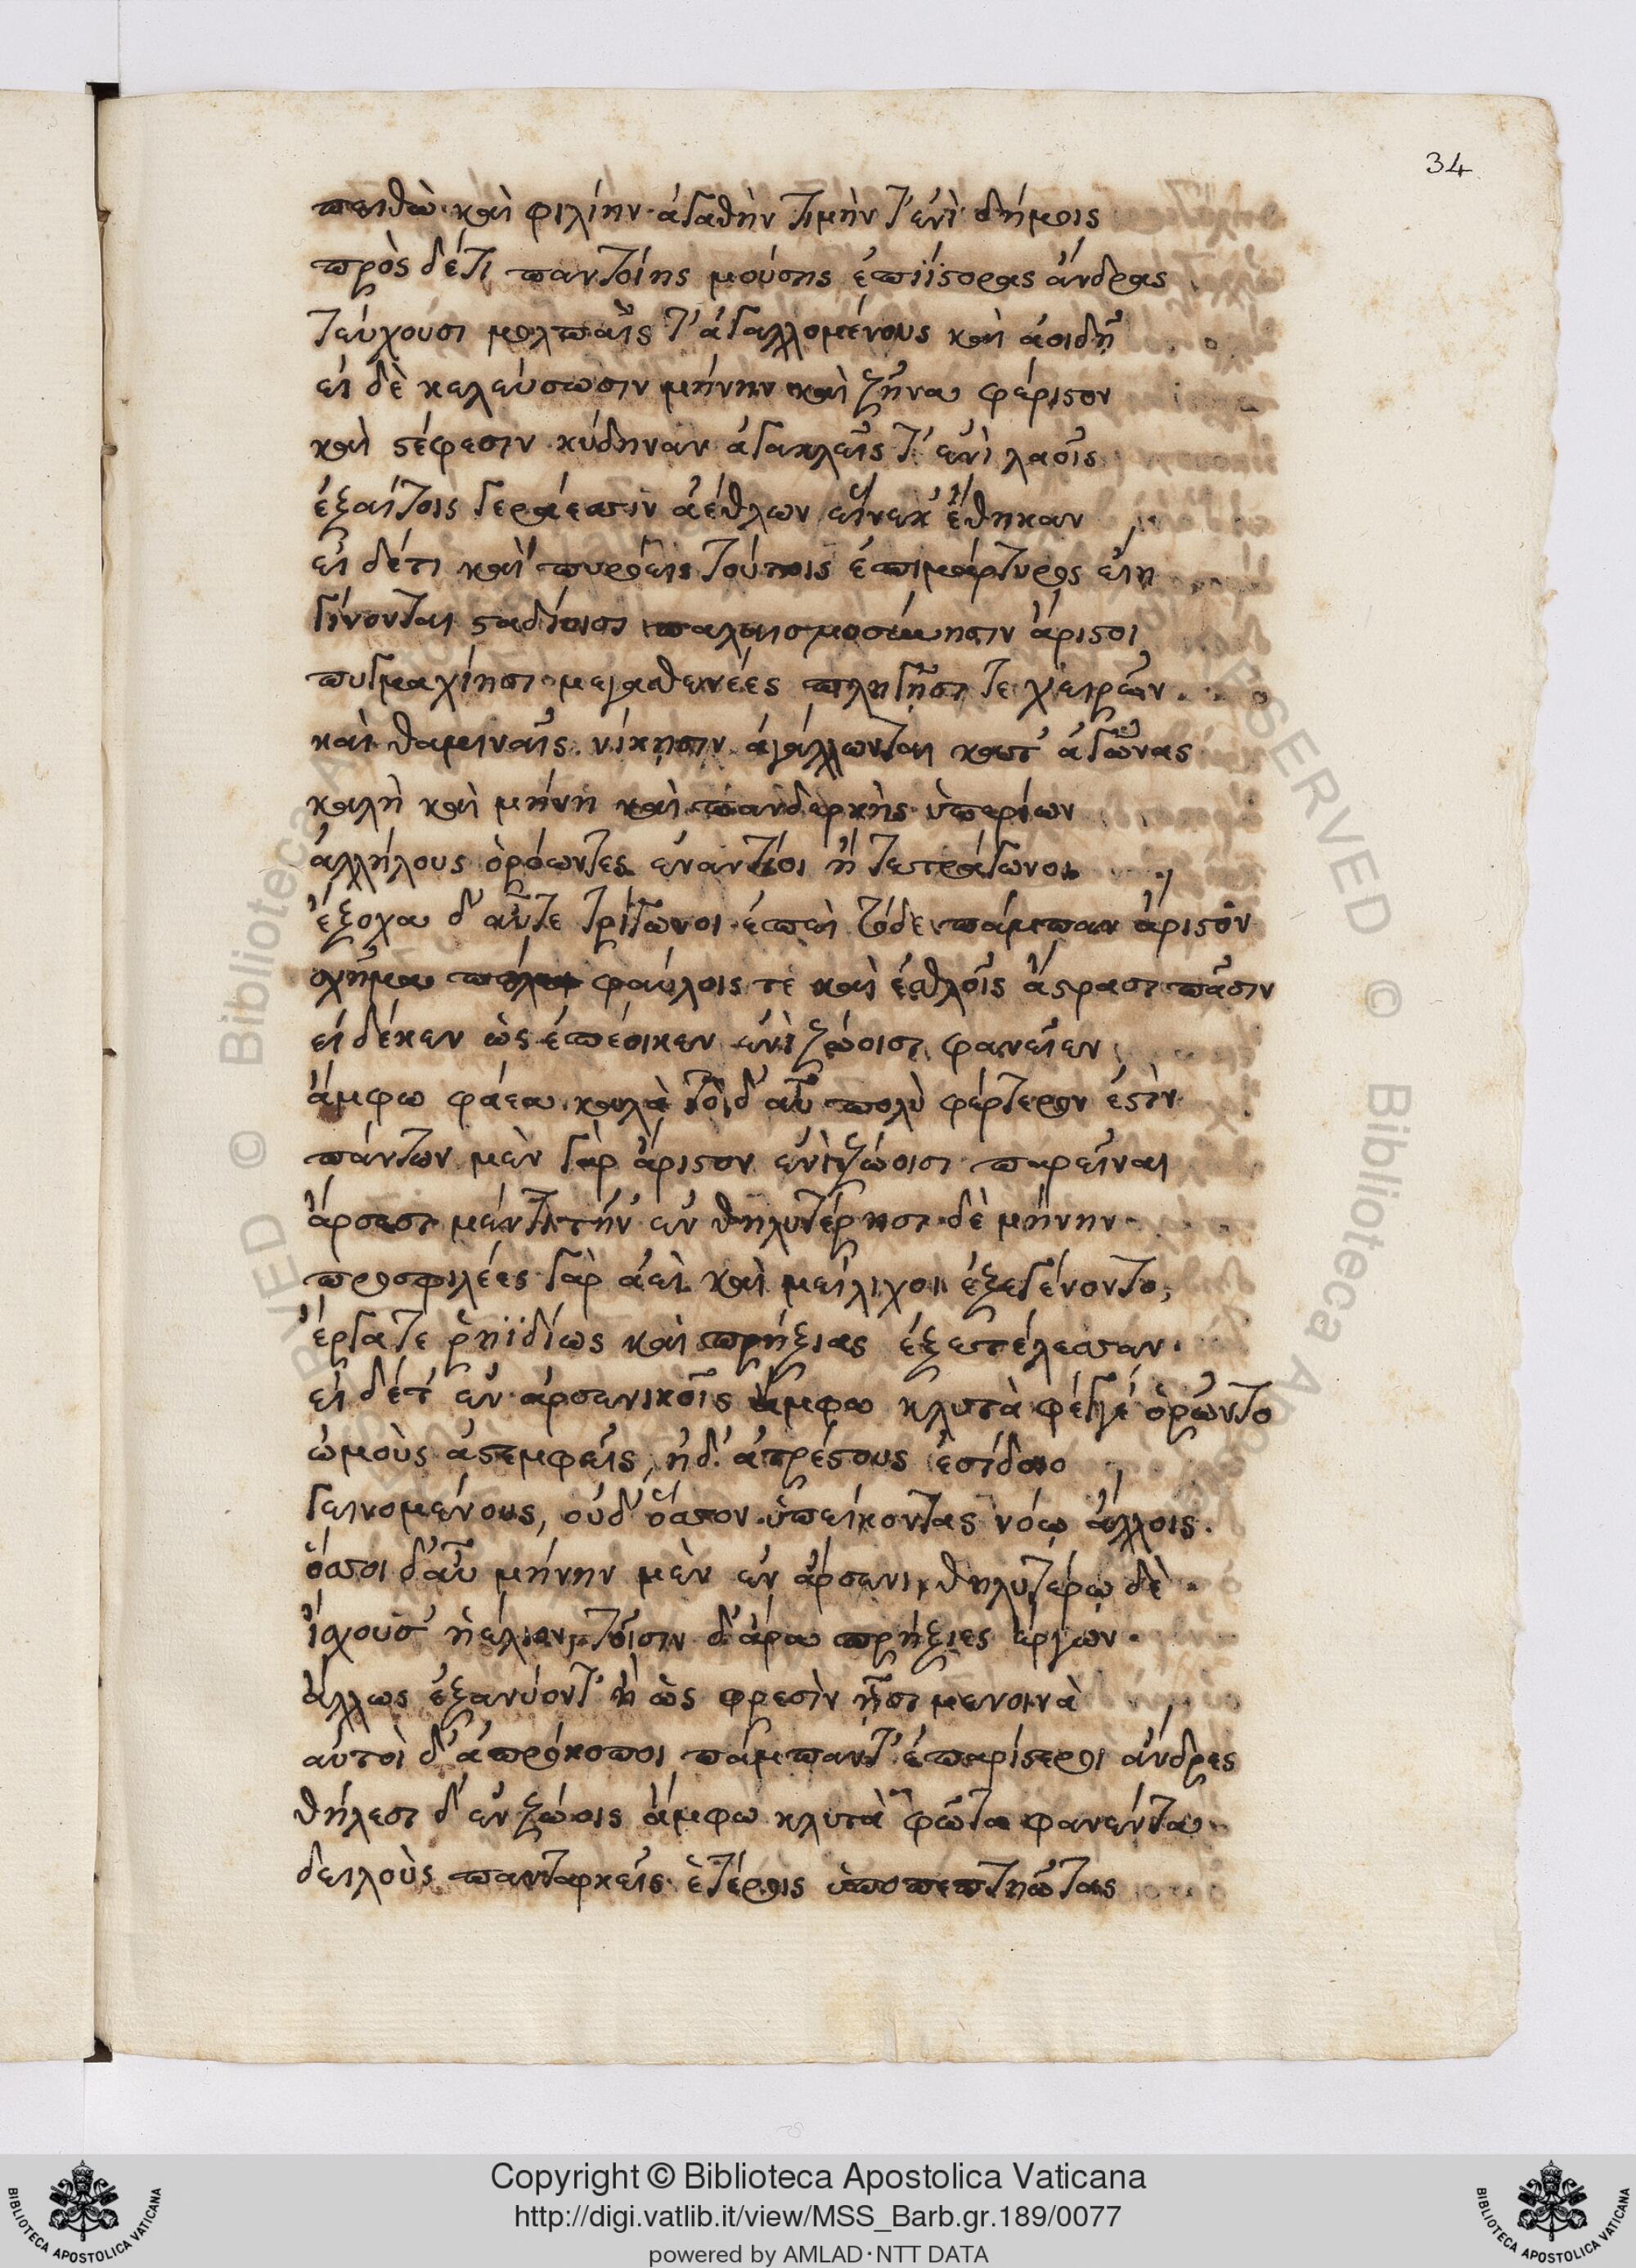 34
πειθὼ καὶ φιλίην ἀγαθὴν τιμὴν τ' ἐνὶ δήμοις
πρὸς δέτι παντοίης μούσης ἐπιΐστορας ἄνδρας
τεύχουσι μολπαῖς τ' ἀγαλλομένους καὶ ἀοιδῇ
εἰ δὲ κελεύσωσιν μήνην καὶ ζῆνα φέριστον
καὶ στέφεσιν κύδηναν ἀγακλεῖς τ' ἐνὶ λαοῖς
ἐξαίτοις γεράεσσιν ἀέθλων εἵνεκ' ἔθηκαν
εἰ δέτι καὶ πυρόεις τούτοις ἐπιμάρτυρος εἴη
γίνονται σταδίοισι παλαισμοσύνησιν ἄριστοι
πυγμαχίησι μεγασθενέες πληγῇσι τε χειρῶν.
καὶ θαμιναῖς νίκησιν ἀγάλλονται κατ' ἀγῶνας
καλὴ καὶ μήνη καὶ πανδερκὴς ὑπερίων
ἀλλήλους ὁρόωντες ἐναντίοι ἢ τετράγωνοι
ἔξοχα δ' αὖτε τρίγωνοι ἐπεὶ τόδε πάμπαν ἄριστον
σχῆμα φαύλοις τε καὶ ἐσθλοῖς ἄστρασι πᾶσιν
εἰ δέκεν ὡς ἐπέοικεν ἐνὶ ζώοισι φανεῖεν
ἄμφω φάεα καλὰ τὸ δ' αὖ πολὺ φέρτερον ἐστὶν
πάντων μὲν γὰρ ἄριστον ἐνὶ ζώοισι παρεῖναι
ἄρσεσι μέν τιτήν ἐν θηλυτέρησι δὲ μήνην
προσφιλέες γὰρ ἀεὶ καὶ μείλιχοι ἐξεγένοντο,
ἔργατε ῥηϊδίως καὶ πρήξιας ἐξετέλεσσαν.
εἰ δέτ' ἐν ἀρσενικοῖς ἄμφω κλυτὰ φέγγε' ὁρῶντο
ὠμοὺς ἀστεμφεῖς, ἠδ' ἀτρέστους ἐσίδοιο
γεινομένους, οὐδ' ὅσσον ὑπείκοντας νόῳ ἄλλοις.
ὅσσοι δ' αὖ μήνην μὲν ἐν ἄρσενι, θηλυτέρῳ δὲ
ἴσχουσ' ἠέλιον, τοῖσιν δ' ἄρα πρήξιες ἔργων.
ἄλλως ἐξανύοντ' ἢ ὡς φρεσὶν ᾗσι μενοινὰ
αὐτοὶ δ' ἀπρόκοποι πάμπαν τ' ἐπαρίστεροι ἄνδρες
θήλεσι δ' ἐν ζώοις ἄμφω κλυτὰ φῶτα φανέντα
δειλοὺς πανταρκεῖς ἑτέροις ὑποπεπτηῶτας
Copyright © Biblioteca Apostolica Vaticana
http://digi.vatlib.it/view/MSS_Barb.gr.189/0077
powered by AMLAD·NTT DATA
BIBLIOTECA APOSTOLICA VATICANA
BIBLIOTECA APOSTOLICA VATICANA